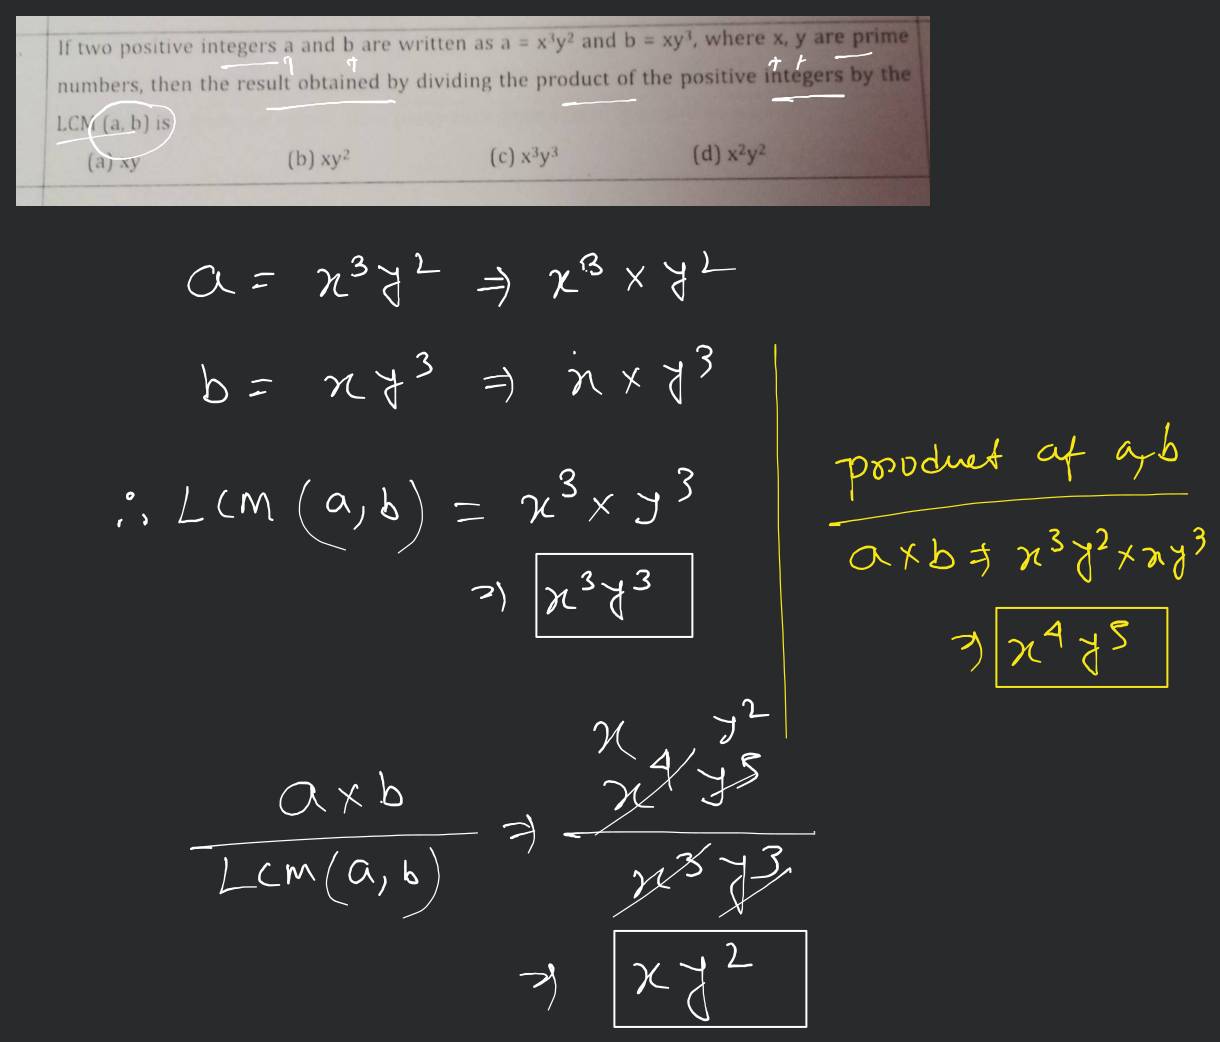 If two positive integers a and b are written as a = x³y² and b = xy³, where x, y are prime
numbers, then the result obtained by dividing the product of the positive integers by the
LCM (a, b) is
(a) xy (b) xy² (c) x³y³ (d) x²y²
a = x³y² ⇒ x³ × y²
b = xy³ ⇒ x × y³
∴ LCM (a, b) = x³ × y³
⇒ x³y³
product of a, b
a×b ⇒ x³y² × xy³
⇒ x⁴y⁵
x y²
a×b ⇒ x⁴ y⁵
LCM(a, b) x³ y³
⇒ xy²